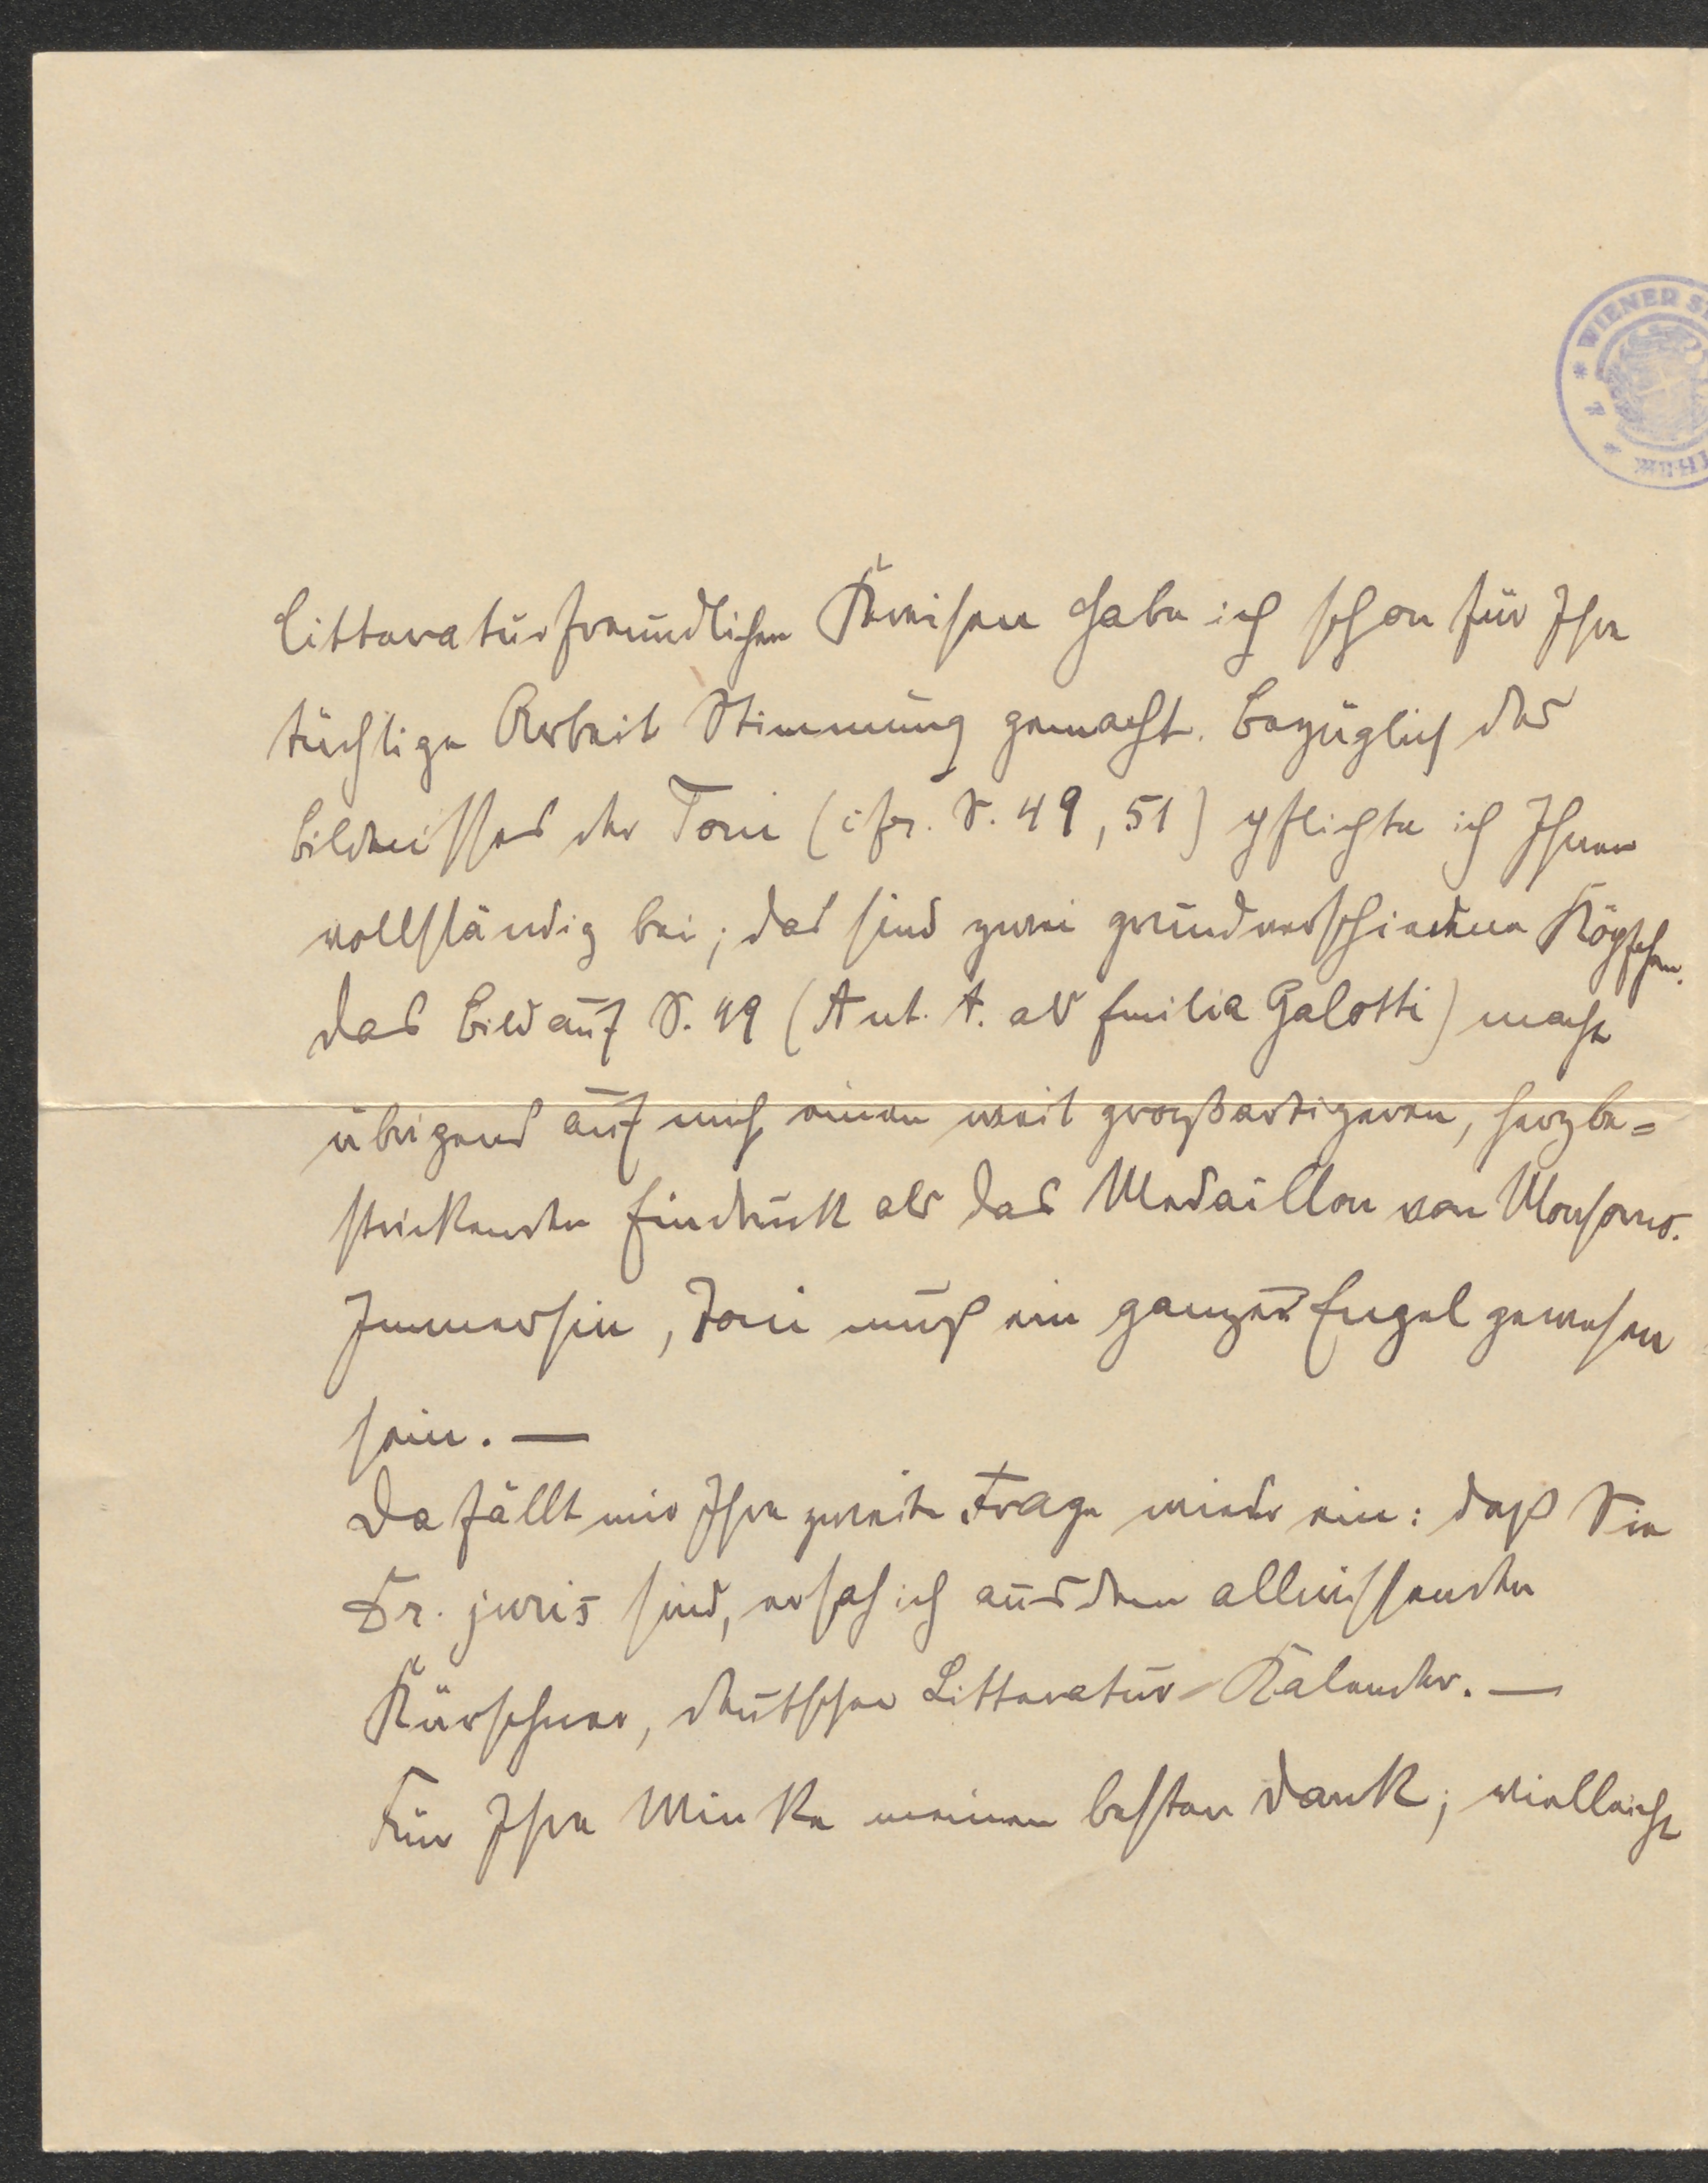 WIENER S
litteraturfreundlichen Kreisen habe ich schon für Ihre
tüchtige Arbeit Stimmung gemacht. Bezüglich des
Bildnisses der Toni (cfr. S. 49, 51) pflichte ich Ihnen
vollständig bei; das sind zwei grundverschiedene Köpfchen.
Das Bild auf S. 49 (Ant. A. als Emilia Galotti) macht
übrigens auf mich einen weit großartigeren, herzbe=
strickenden Eindruck als das Medaillon von Monsorno.
Immerhin, Toni muß ein ganzer Engel gewesen
sein. —
Da fällt mir Ihre zweite Frage wieder ein: daß Sie
Dr. juris sind, ersah ich aus dem allwissenden
Kürschner, deutscher Litteratur-Kalender. —
Für Ihre Winke meinen besten Dank; vielleicht